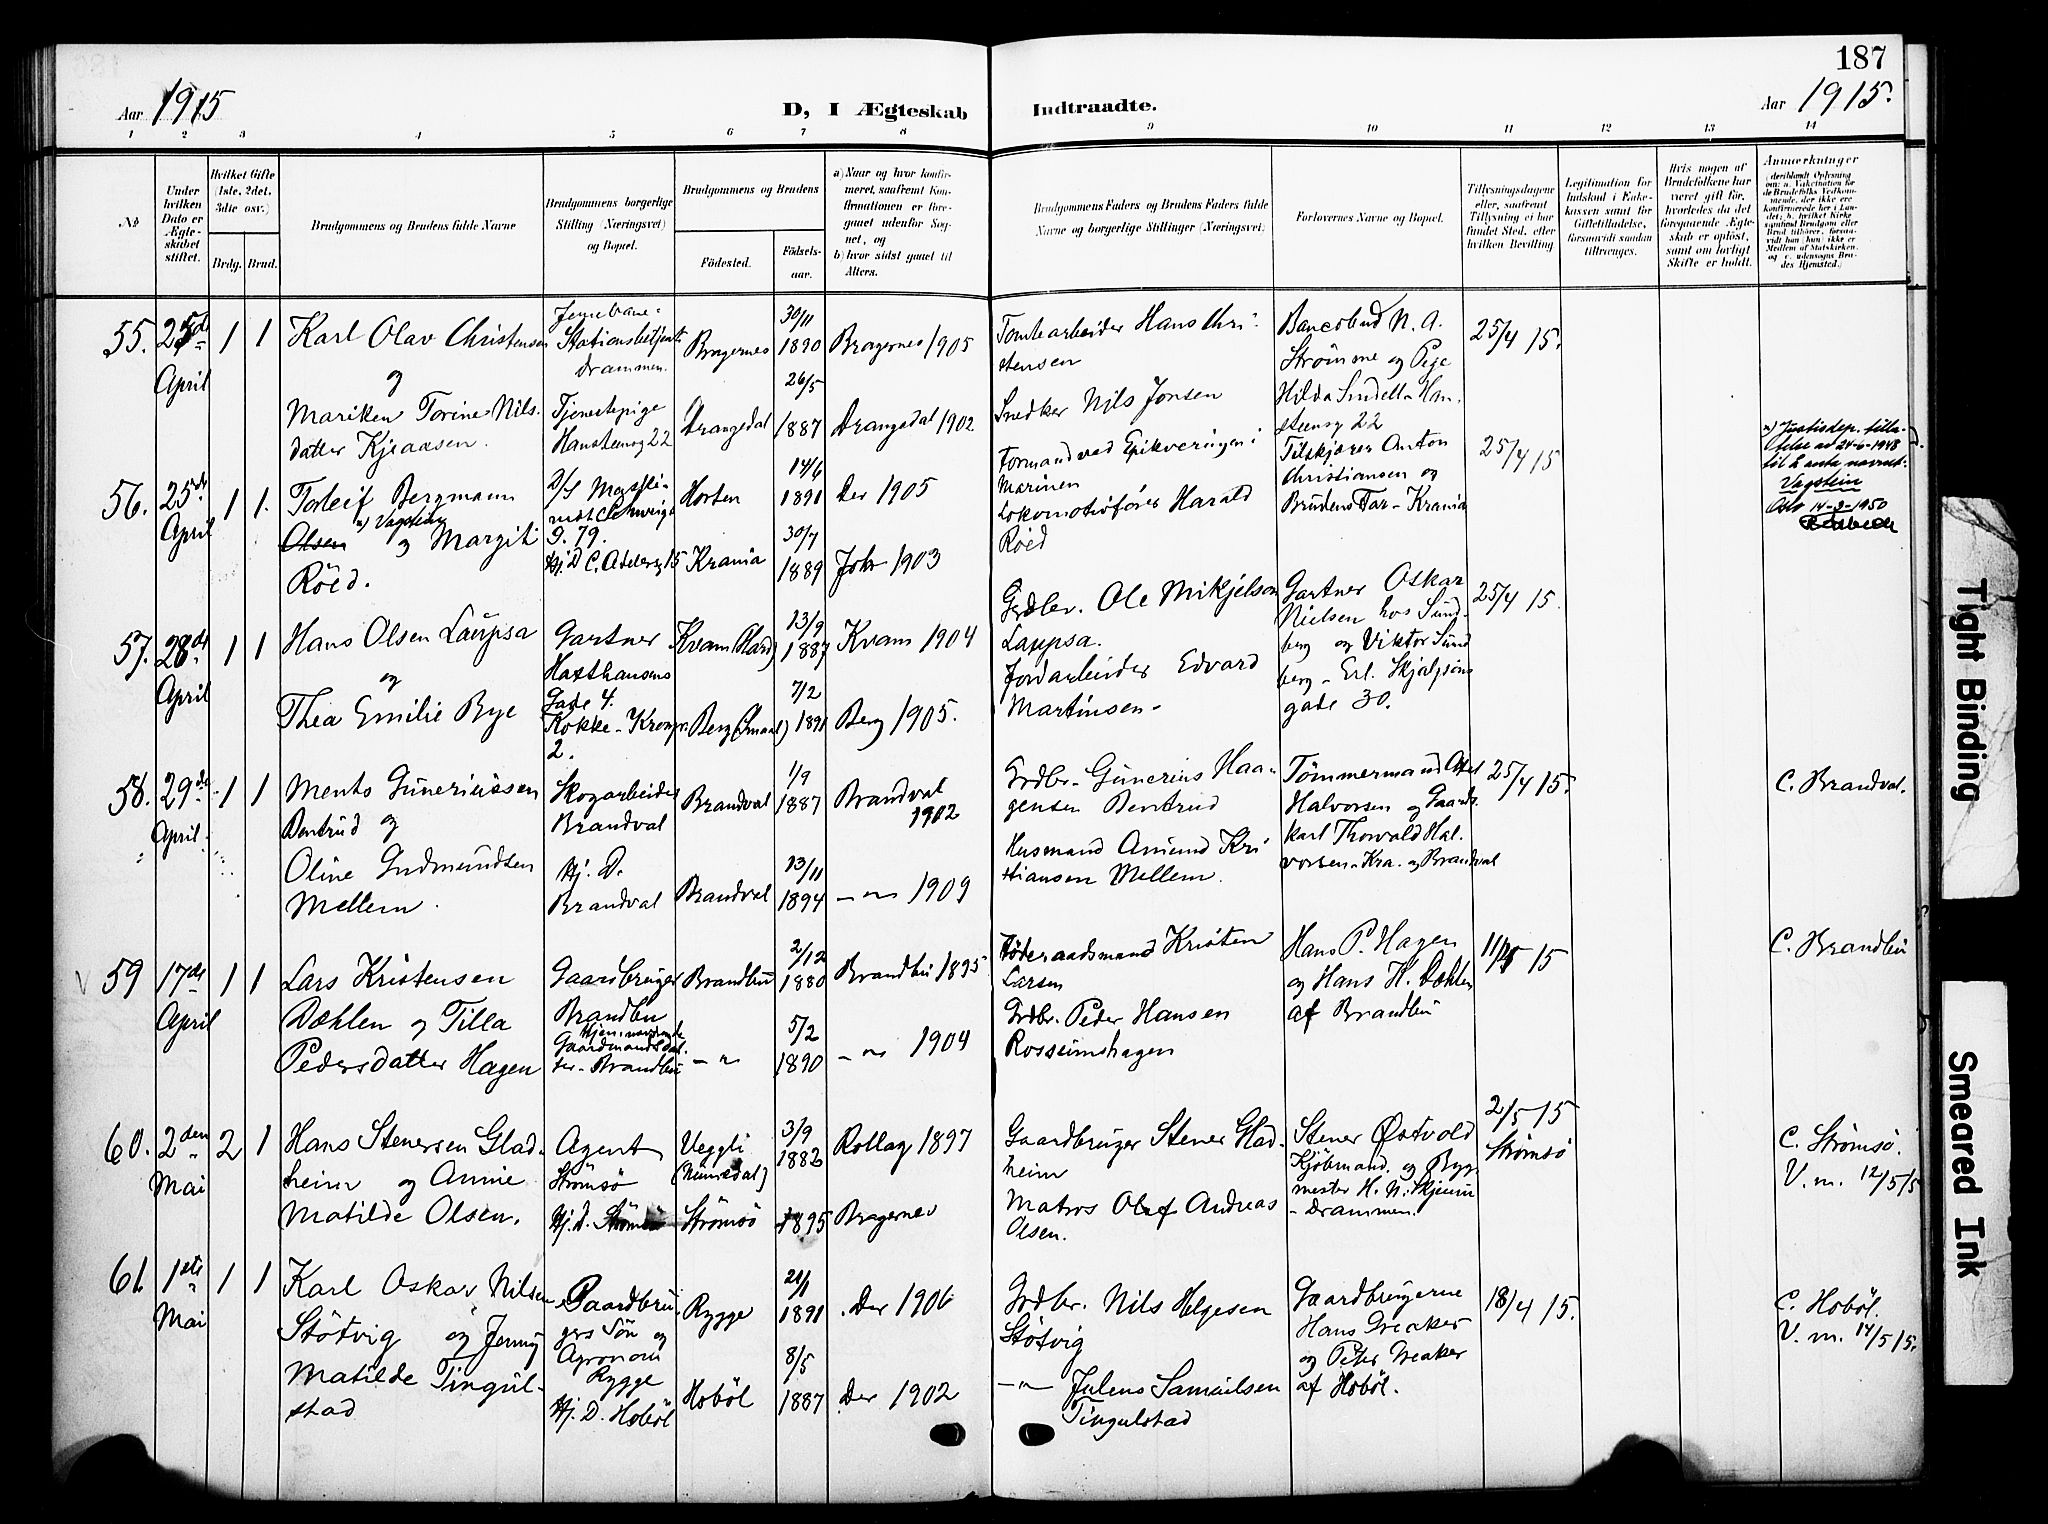 187
Aar 1915
D, I Ægteskab Indtraadte.
Aar 1915.
1 2 3 4 5 6 7 8 9 10 11 12 13 14
No
Under hvilken Dato er Ægteskabet stiftet.
Hvilket Gifte (1ste, 2det, 3die osv.)
Brdg. Brud.
Brudgommens og Brudens fulde Navne
Brudgommens borgerlige Stilling (Næringsvei) og Bopæl.
Brudgommens og Brudens
Fødested.
Fødselsaar.
a) Naar og hvor konfirmeret, saafremt Konfirmationen er foregaaet udenfor Sognet, og
b) hvor sidst gaaet til Alters.
Brudgommens Faders og Brudens Faders fulde Navne og borgerlige Stillinger (Næringsvei)
Forlovernes Navne og Bopæl.
Tillysningsdagene eller, saafremt Tillysning ei har fundet Sted, efter hvilken Bevilling
Legitimation for Indskud i Enkekassen samt for Giftetilladelse, forsaavidt saadan tiltrænges.
Hvis nogen af Brudefolkene har været gift før, hvorledes da det foregaaende Ægteskab er opløst, samt om lovligt Skifte er holdt.
Anmærkninger
(deriblandt Oplysning om: a. Vakcination for de Brudefolks Vedkommende, der ikke ere konfirmerede her i Landet; b. hvilket Kirkesamfund Brudgom eller Brud tilhører, forsaavidt han (hun) ikke er Medlem af Statskirken, og c. udensogns Brudes Hjemsted.)
55. 25de April 1 1
Karl Olav Christensen
og
Mariken Torine Nilsdatter Kjeaasen.
Jernbane-
Stationsbetjent
Drammen.
Tjenestepige
Hansteensg 22
Bragernes 30/11 1890 Bragernes 1905
Drangedal 26/5 1887 Drangedal 1902
Tomtearbeider Hans Christensen
Snedker Nils Jonsen
Bancobud N. A.
Strömme og Pige
Hilda
Hansteensg 22
25/4 15.
56. 25de April 1 1.
Torleif Bergmann
Olsen x) Vagstein og Margit
Röed.
D/S
9. 79.
Hj. D C. Adelersg 15
Horten 14/6 1891 Der 1905
Krania 30/7 1889 Joh 1903
Formand ved Epikveringen i
Marinen
Lokomotivfører Harald
Röed
Tilskjærer Anton
Christiansen og
Brudens Far - Krania
25/4 15
x) Justisdep. tillatelse av 24-6-1948
til å anta navnet:
Vagstein
Oslo 14-3-1950
57. 28de April 1 1
Hans Olsen Laupsa
og
Thea Emilie Bye
Gartner
Haxthausens
Gade 4.
Kokke - Kronpr.
2.
Kvam (Hard) 13/9 1887 Kvam 1904
Berg (Smaal) 7/2 1891 Berg 1905.
Grdbr. Ole Mikjelson
Laupsa.
Jordarbeider Edvard
Martinsen -
Gartner Oskar
Nielsen hos Sundberg og Viktor Sundberg - Erl. Skjalgsöns
gade 30.
25/4 15.
58. 29de April. 1 1
Mento Güneriussen
Bentrud og
Oline Gudmundsen
Mellem.
Skogarbeider
Brandval
Hj. D.
Brandval
Brandval 1/9 1887 Brandval 1902
Brandval 13/11 1894 - " - 1909
Grdbr. Günerius Haagensen Bentrud
Husmand Amund Kristiansen Mellem.
Tömmermand Axel
Halvorsen og Gaardskarl Thorvald Halvorsen - Kra. og Brandval
25/4 15.
C. Brandval.
V 59 17de April 1 1
Lars Kristensen
Dæhlen og Tilla
Pedersdatter Hagen
Gaardbruger
Brandbu
Hjemmeværende
Gaardmandsdatter - Brandbu
Brandbu 2/12 1880 Brandbu 1895
- " - 5/2 1890 - " - 1904
Föderaadsmand Kristen
Larsen
Grdbr. Peder Hansen
Rossumshagen
Hans P. Hagen
og Hans K. Dæhlen
af Brandbu
11/4 15
C. Brandbu
60. 2den Mai 2 1
Hans Stenersen Gladheim og Annie
Matilde Olsen.
Agent
Strömsö
Hj. D. Strömsö
Veggli
(Numedal) 3/9 1882 Rollag 1897
Strömsö 1895 Bragernes
Gaardbruger Stener Gladheim
Matros Olaf Andreas
Olsen.
Stener Østvold
Kjöbmand. og Bygmester H. N. Skjeum
- Drammen.
2/5 15
Strömsö
C. Strömsö.
V. m. 12/5 15
61. 1ste Mai 1 1
Karl Oskar Nilsen
Stötvig og Jenny
Matilde Tingulstad
Gaardbrugers Sön og
Agronom
Rygge
Hj. D. Hoböl
Rygge 21/1 1891 Der 1906
Hoböl 8/5 1887 Der 1902
Grdbr. Nils Helgesen
Stötvig
- " - Julens Samuelsen
Tingulstad
Gaardbrugerne
Hans Greaker
og Peter Greaker
af Hoböl.
18/4 15.
C. Hoböl.
V. m. 14/5 15.
Tight Binding
Smeared Ink